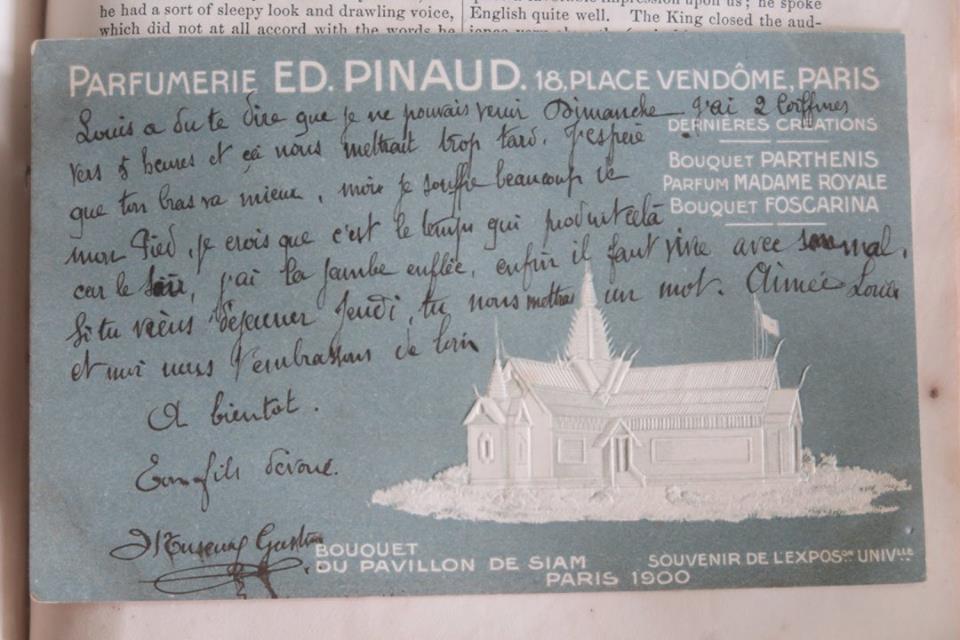 he had a sort of sleepy look and drawling voice,
which did not at all accord with the words he
English quite well. The King closed the aud-
PARFUMERIE ED. PINAUD. 18, PLACE VENDÔME, PARIS
Louis a du te dire que je ne pouvais venir Dimanche j'ai 2 Coiffures
vers 5 heures et ça nous mettrait trop tard. J'espère
que ton bras va mieux, moi je souffre beaucoup de
mon Pied, je crois que c'est le temps qui produit cela
car le soir, j'ai la jambe enflée, enfin il faut vivre avec son mal.
Si tu viens déjeuner Jeudi, tu nous mettras un mot. Aimée Louis
et moi nous t'embrassons de loin
A bientot.
Ton fils dévoué.
Gaston
DERNIÈRES CRÉATIONS
BOUQUET PARTHENIS
PARFUM MADAME ROYALE
BOUQUET FOSCARINA
BOUQUET
DU PAVILLON DE SIAM
SOUVENIR DE L'EXPOSON UNIVLLE
PARIS 1900